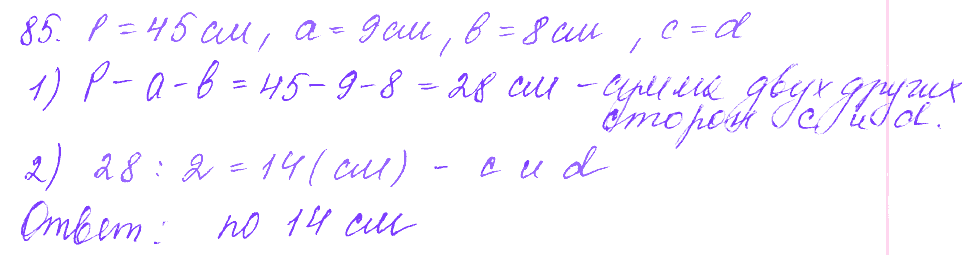 85. P = 45 см, a = 9 см, b = 8 см, c = d
1) P - a - b = 45 - 9 - 8 = 28 см - сумма двух других
сторон c и d.
2) 28 : 2 = 14 (см) - c и d
Ответ: по 14 см